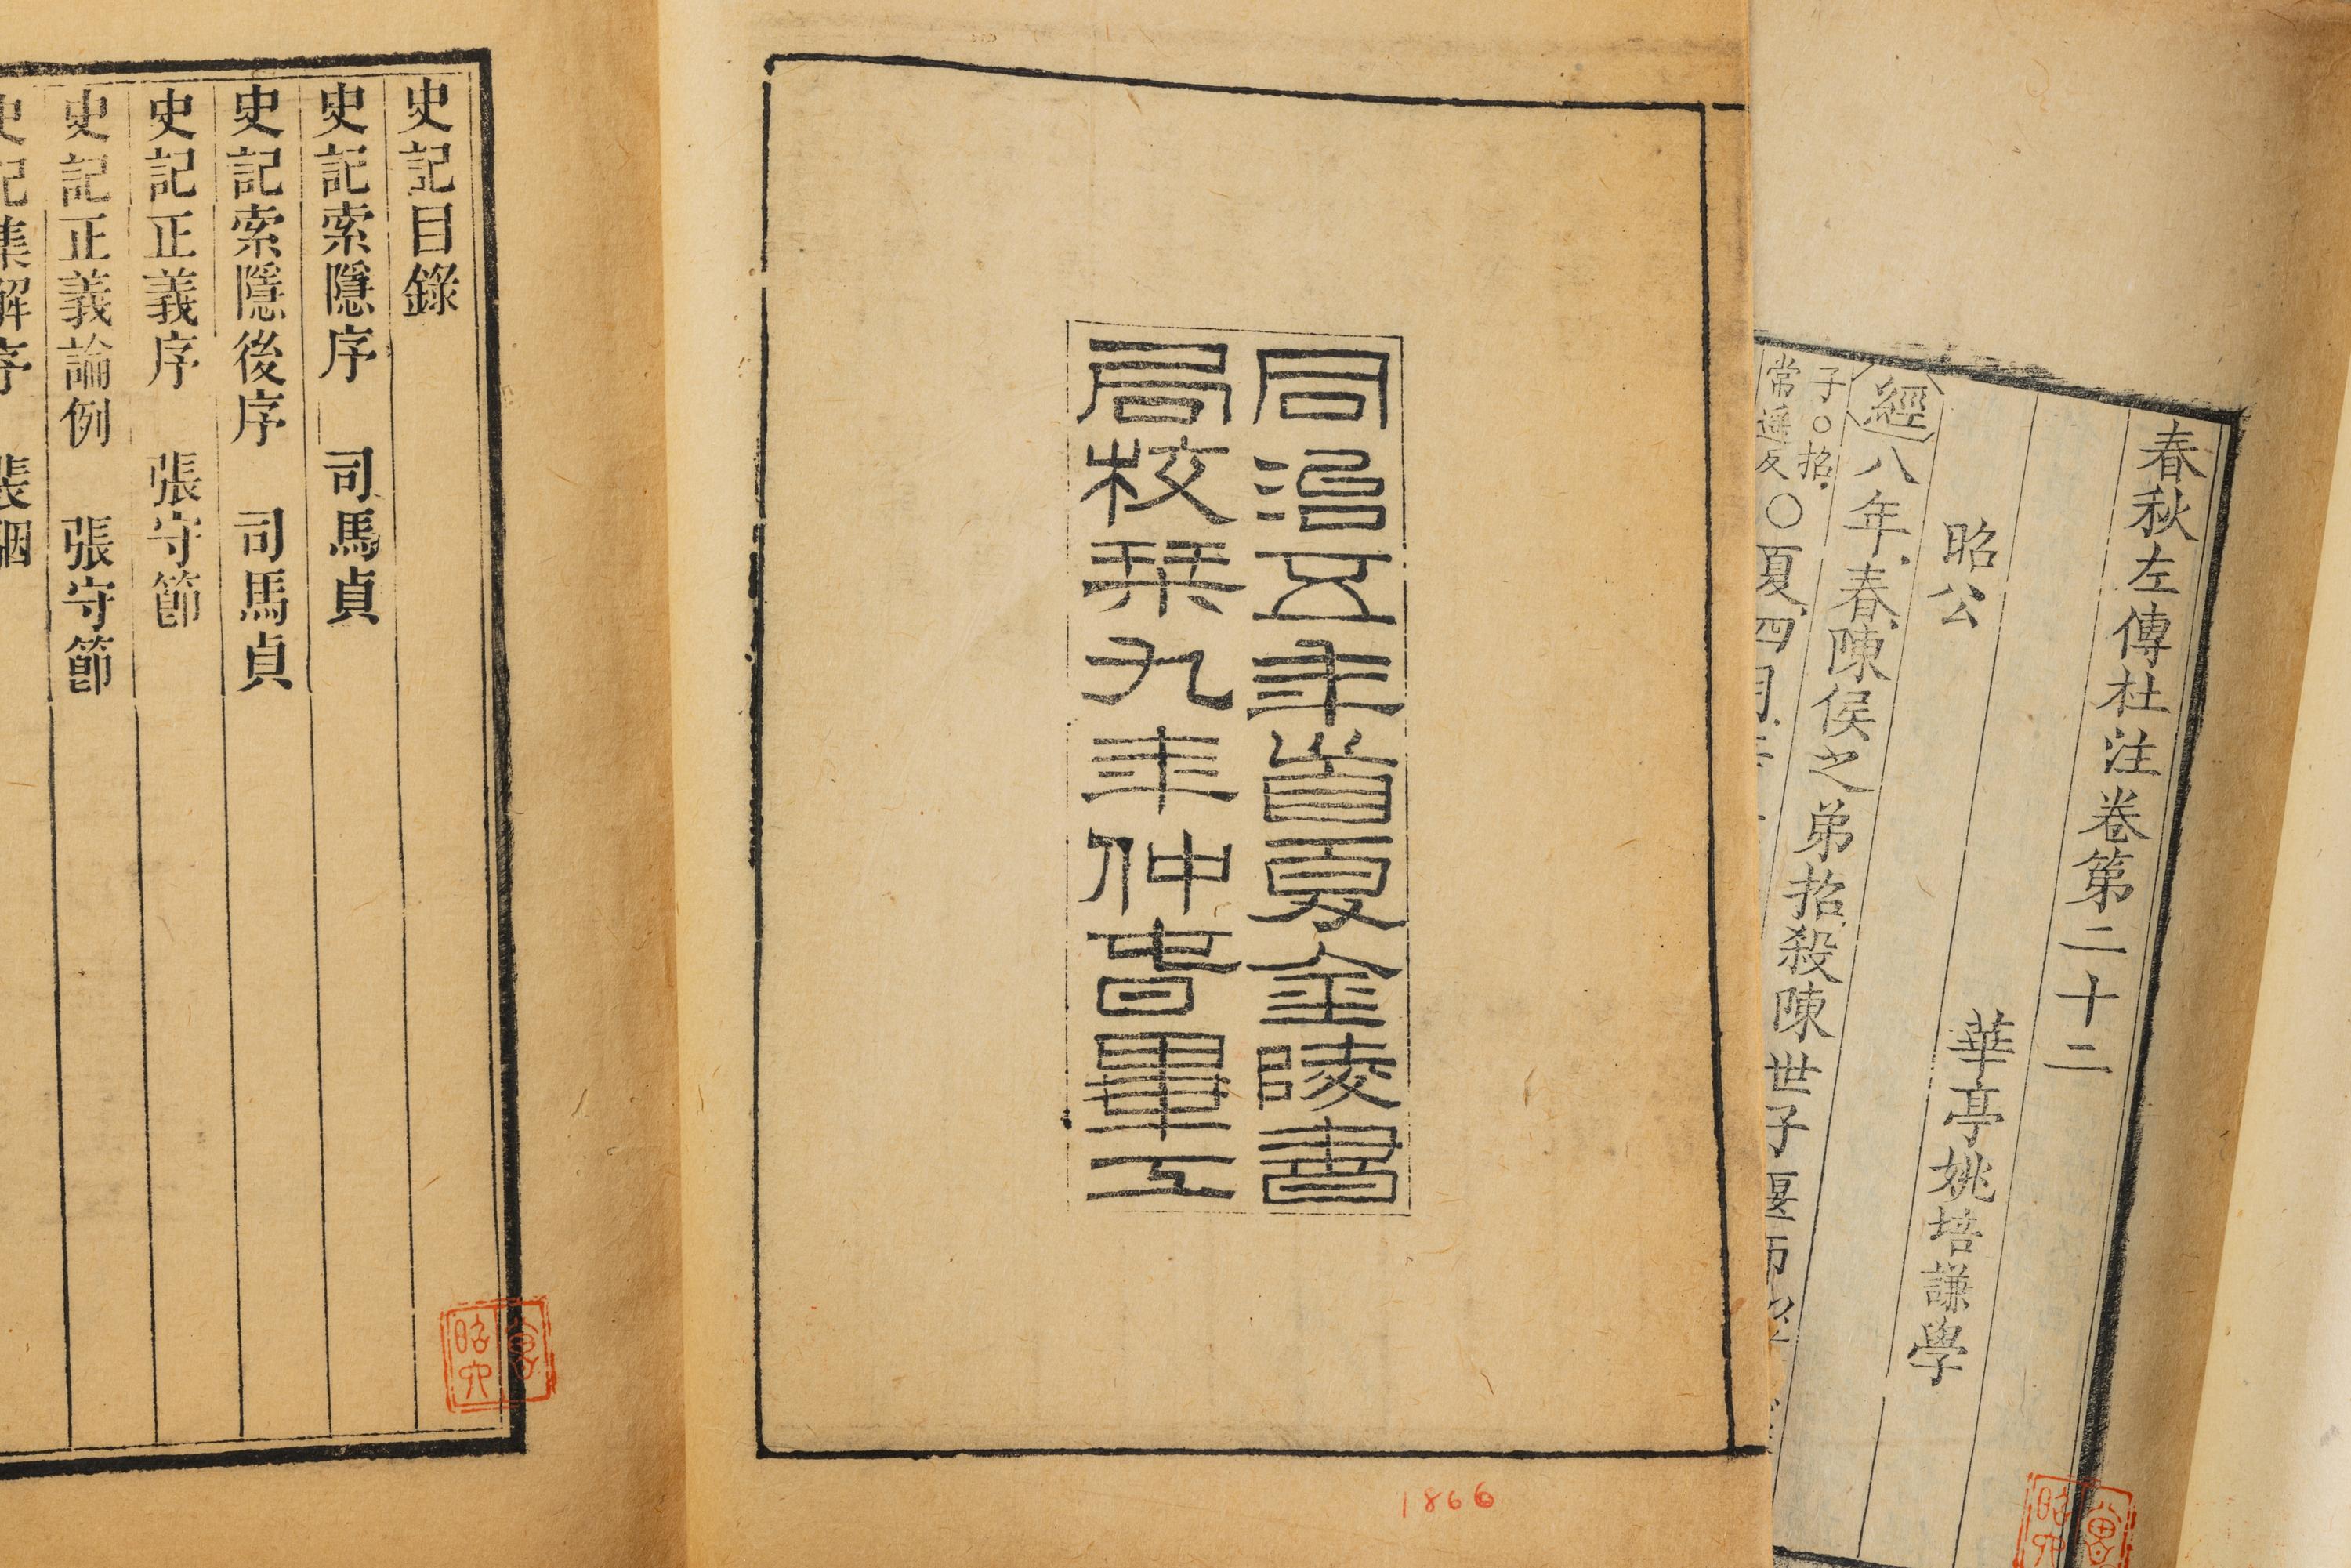 史記目錄
史記索隱序　司馬貞
史記索隱後序　司馬貞
史記正義序　張守節
史記正義論例　張守節
史記集解序　裴駰
同治五年首夏金陵書
局校栞九年仲春畢工
1866
春秋左傳杜注卷第二十二
華亭姚培謙學
昭公
經八年春陳侯之弟招殺陳世子偃師
子○招
常遙反○夏四月